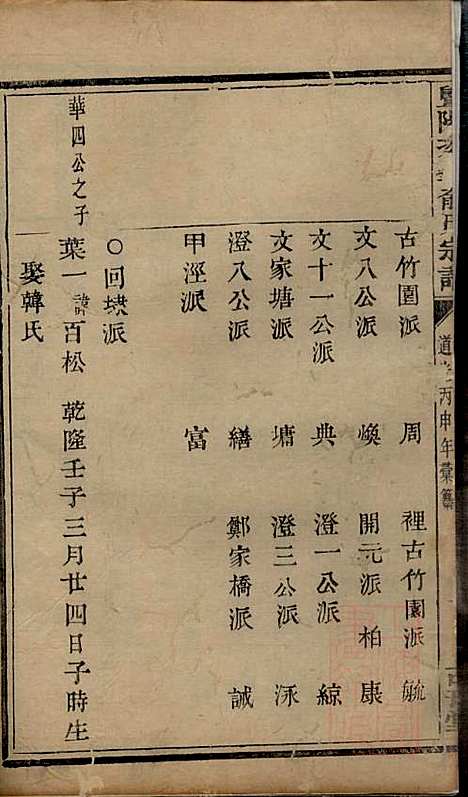 暨陽 俞氏宗譜
道光丙申年彙纂
古竹園派 周 裡古竹園派 毓
文八公派 煥 開元派 柏 康
文十一公派 典 澄一公派 綡
文家塘派 墉 澄三公派 泳
澄八公派 繕 鄭家橋派 誠
甲涇派 富
○回墺派
華四公之子 葉一 諱百松 乾隆壬子三月廿四日子時生
娶韓氏